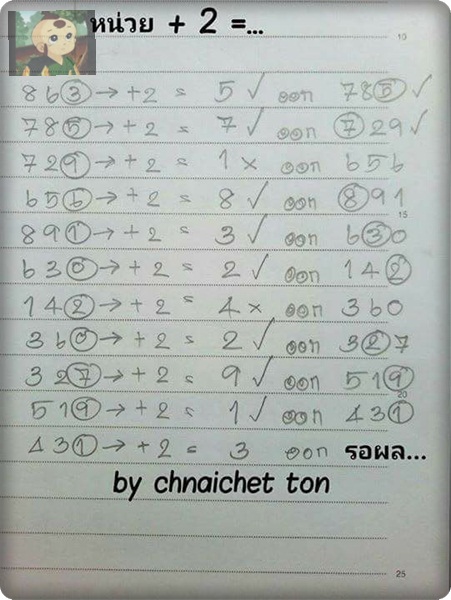 หน่วย + 2 =...
10
863 → +2 = 5 ✓ ออก 785 ✓
785 → +2 = 7 ✓ ออก 729 ✓
729 → +2 = 1 × ออก 656
656 → +2 = 8 ✓ ออก 891
15
891 → +2 = 3 ✓ ออก 630
630 → +2 = 2 ✓ ออก 142
142 → +2 = 4 × ออก 360
360 → +2 = 2 ✓ ออก 327
327 → +2 = 9 ✓ ออก 519
20
519 → +2 = 1 ✓ ออก 431
431 → +2 = 3 ออก รอผล...
by chnaichet ton
25